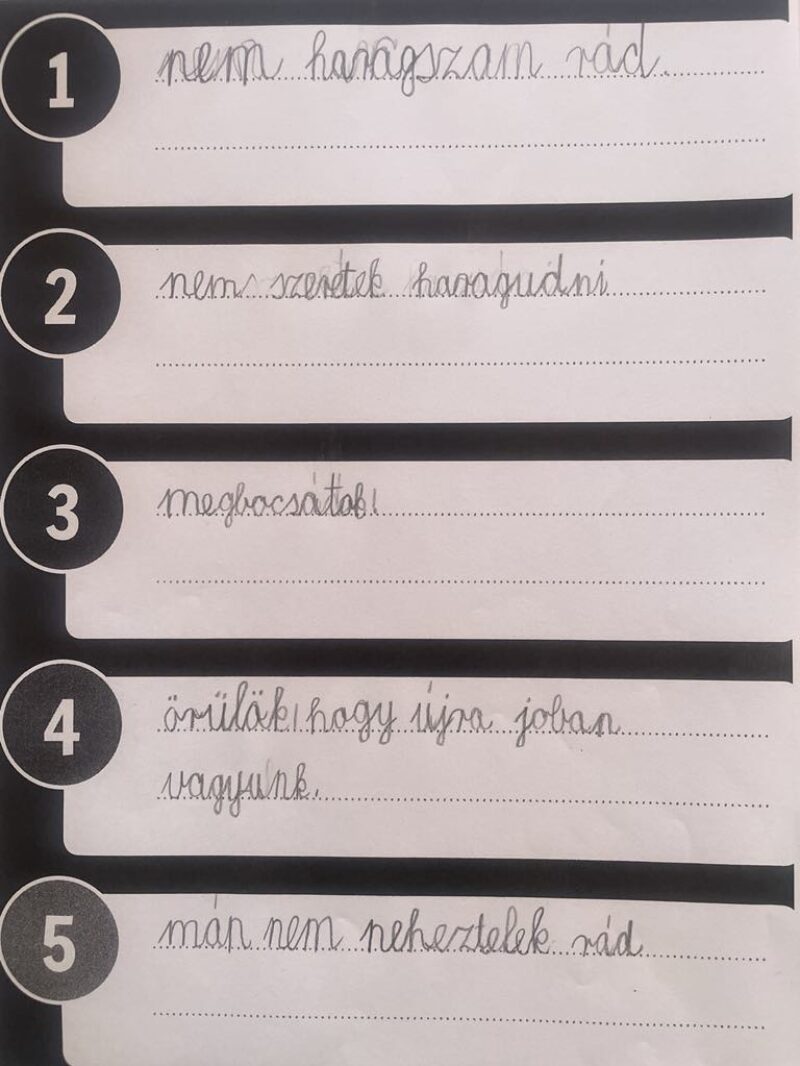 1
nem haragszam rád.
2
nem szeretek haragudni
3
megbocsátok!
4
örülök, hogy újra joban
vagyunk.
5
mán nem neheztelek rád